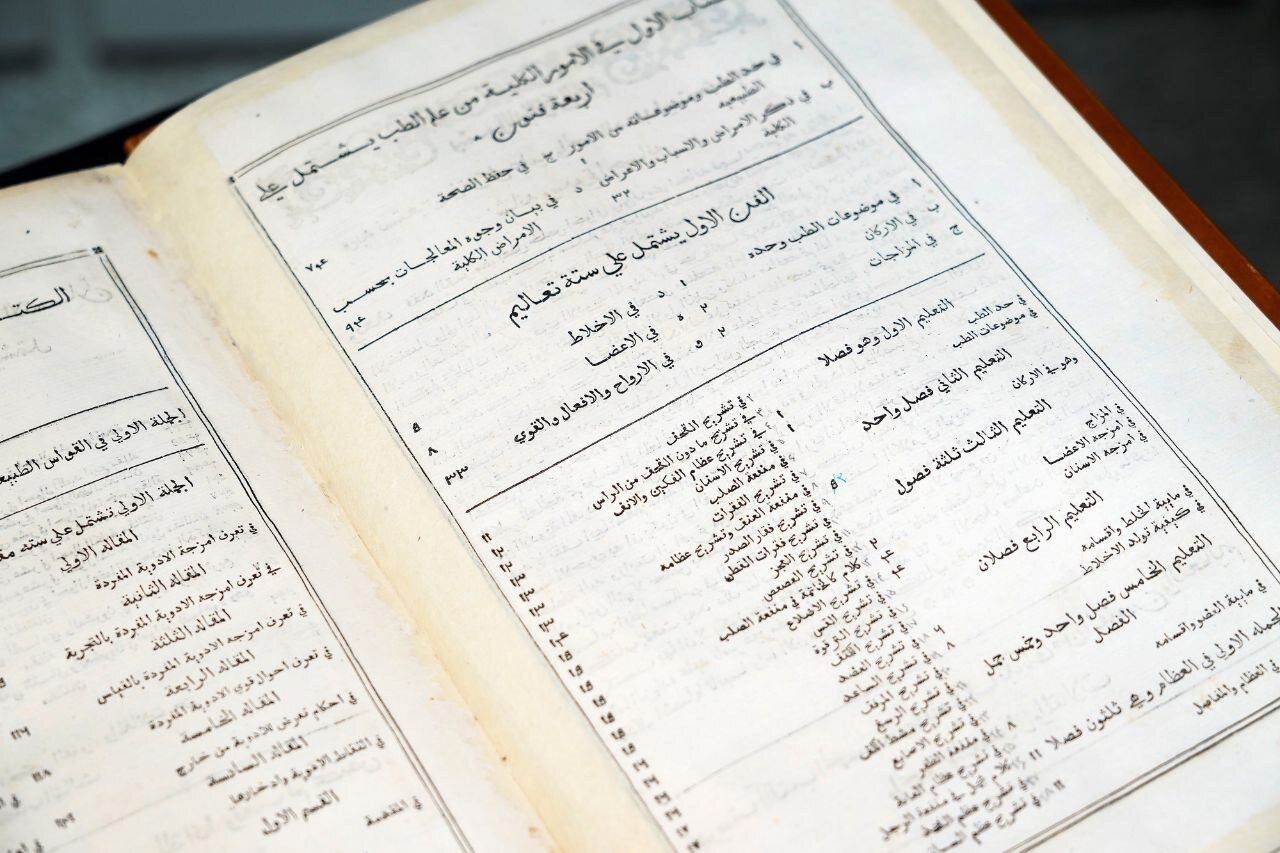 الكتاب الاول في الامور الكلية من علم الطب يشتمل علي
اربعة فنون
ا في حد الطب وموضوعاته من الامور الطبيعيه
ج في حفظ الصحة
ب في ذكر الامراض والاسباب والاعراض الكلية ٣٢
د في بيان وجوه المعالجات بحسب الامراض الكلية
الفن الاول يشتمل علي ستة تعاليم
ا في موضوعات الطب وحده ١
د في الاخلاط
ب في الاركان ٢
ه في الاعضا ٨
ج في المزاجات ٢
في الارواح والافعال والقوي ٣٣
التعليم الاول وهو فصلا
في حد الطب
في موضوعات الطب
التعليم الثاني فصل واحد
وهو في الاركان
التعليم الثالث ثلثة فصول
في المزاج
في امزجه الاعضا
في امزجه الاسنان
التعليم الرابع فصلان
في ماهية الخلط واقسامه
في كيفية تولد الاخلاط
التعليم الخامس فصل واحد وخمس جمل
الفصل
في ماهية العضو واقسامه
الجمله الاولي في العظام وهي ثلثون فصلا
في العظام والمفاصل
في تشريح القحف
في تشريح ما دون القحف من الراس
في تشريح عظام الفكين والانف
في تشريح الاسنان
في منفعة الصلب
في تشريح الفقرات
في منفعة العنق وتشريح عظامه
في تشريح فقار الصدر
في تشريح فقرات القطن
في تشريح العجز
في تشريح العصعص
كلام كالخاتمة في منفعة الصلب
في تشريح الاضلاع
في تشريح القص
في تشريح الترقوة
في تشريح الكتف
في تشريح العضد
في تشريح الساعد
في تشريح المرفق
في تشريح الرسغ
في تشريح مشط الكف
في تشريح الاصابع
في منفعة الظفر
في تشريح عظام العانة
كلام مجمل في منفعة الرجل
في تشريح عظم الفخذ
في تشريح عظم الساق
الجملة الاولي في القواس الطبيعيه
الجملة الاولي تشتمل علي سته
المقاله الاولي
في تعرف امزجة الادوية المفردة
المقاله الثانية
في تعرف امزجه الادويه المفردة بالتجربة
المقاله الثلثة
في تعرف امزجه الادويه المفردة بالقياس
المقاله الرابعة
في تعرف احوال قوي الادوية المفردة
المقاله الخامسة
في احكام تعرض للادوية من خارج
المقاله السادسة
في التقاط الادوية وادخارها
القسم الاول